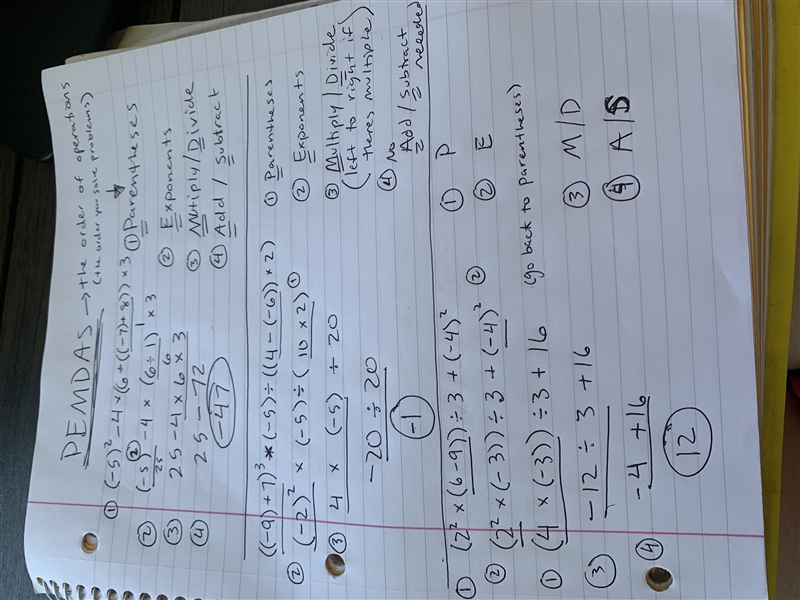 PEMDAS → the order of operations
(the order you solve problems)
① (-5)² - 4 × (6 ÷ ((-7) + 8)) × 3 ① Parentheses
② (-5)² - 4 × (6 ÷ 1)¹ × 3 ② Exponents
25 6
③ 25 - 4 × 6 × 3 ③ Mutiply / Divide
④ 25 - 72 ④ Add / Subtract
-47
((-9) + 7)³ * (-5) ÷ ((4 - (-6)) × 2) ① Parentheses
② (-2)² × (-5) ÷ (10 × 2) ① ② Exponents
③ 4 × (-5) ÷ 20 ③ Multiply / Divide
(left to right if
theres multiple)
-20 ÷ 20 ④ No
Add / Subtract
needed
-1
① (2² × (6 - 9)) ÷ 3 + (-4)² ① P
② (2² × (-3)) ÷ 3 + (-4)² ② ② E
① (4 × (-3)) ÷ 3 + 16 (go back to parentheses)
③ -12 ÷ 3 + 16 ③ M / D
④ -4 + 16 ④ A / S
12